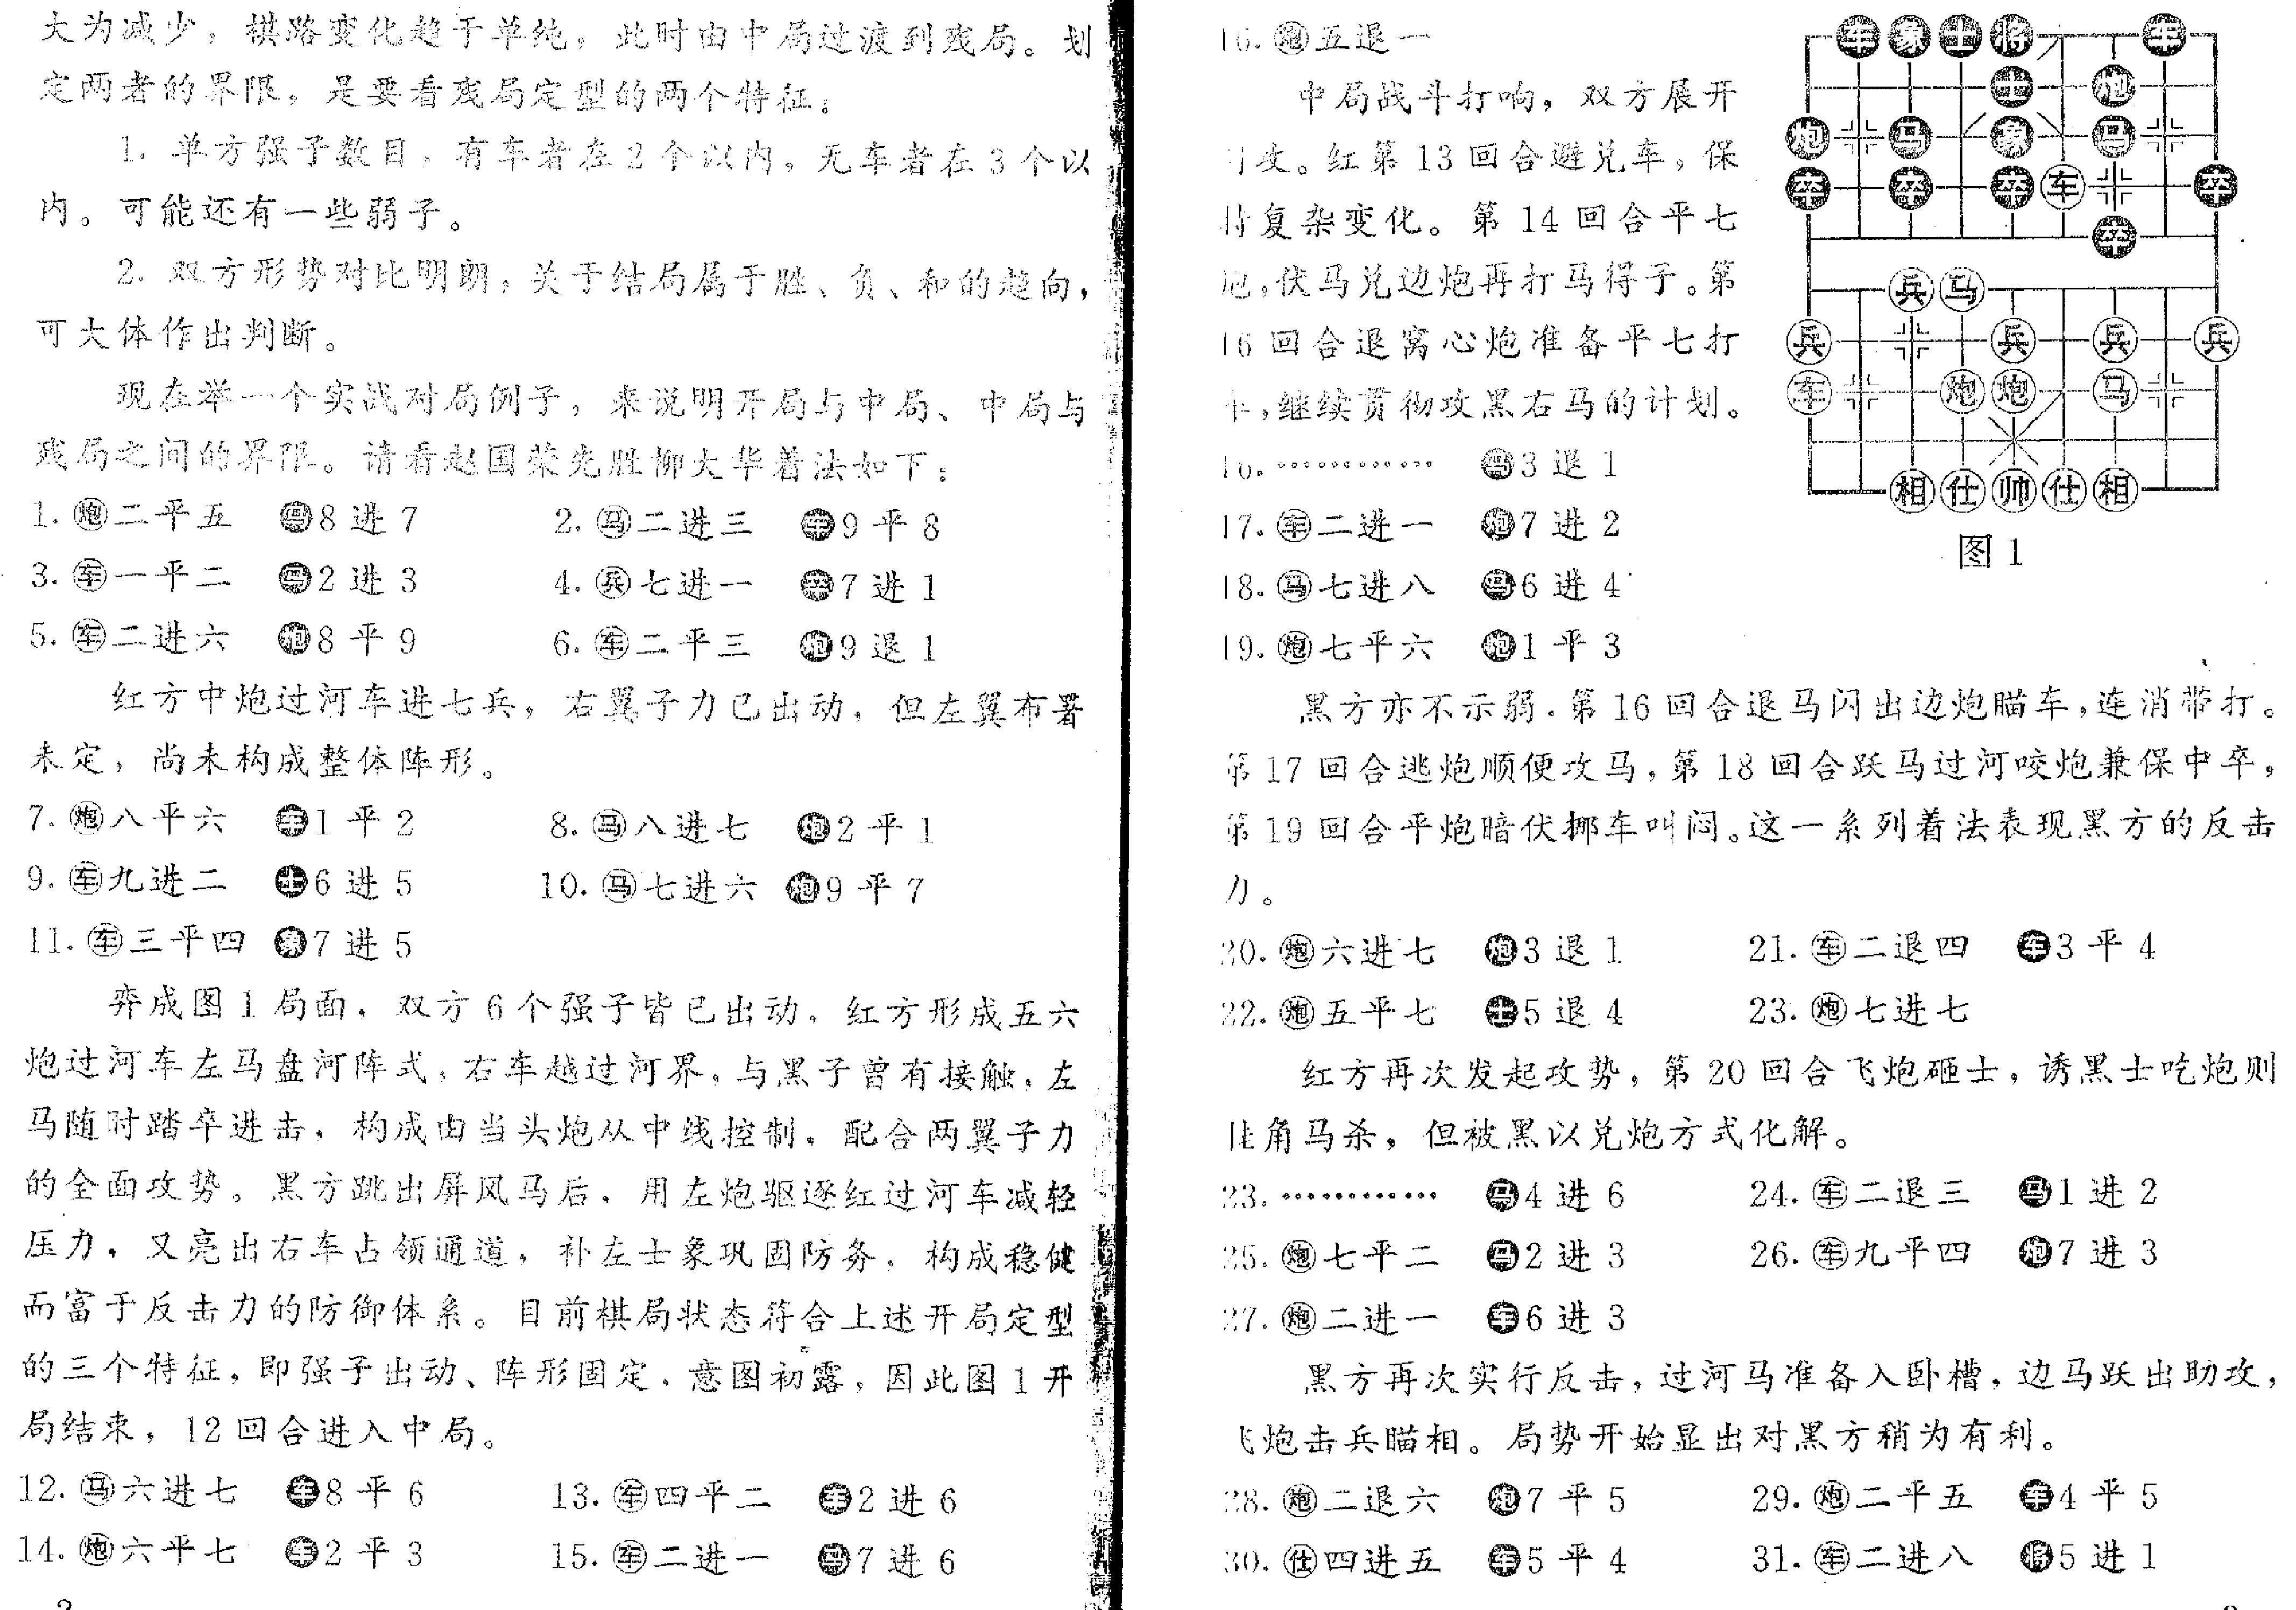 大为减少，棋路变化趋于单纯，此时由中局过渡到残局。划
定两者的界限，是要看残局定型的两个特征：
1. 单方强子数目，有车者在2个以内，无车者在3个以
内。可能还有一些弱子。
2. 双方形势对比明朗，关于结局属于胜、负、和的趋向，
可大体作出判断。
现在举一个实战对局例子，来说明开局与中局、中局与
残局之间的界限。请看赵国荣先胜柳大华着法如下：
1. 炮二平五 马8进7 2. 马二进三 车9平8
3. 车一平二 马2进3 4. 兵七进一 卒7进1
5. 车二进六 炮8平9 6. 车二平三 炮9退1
红方中炮过河车进七兵，右翼子力已出动，但左翼布署
未定，尚未构成整体阵形。
7. 炮八平六 车1平2 8. 马八进七 炮2平1
9. 车九进二 士6进5 10. 马七进六 炮9平7
11. 车三平四 象7进5
弈成图1局面，双方6个强子皆已出动。红方形成五六
炮过河车左马盘河阵式，右车越过河界，与黑子曾有接触，左
马随时踏卒进击，构成由当头炮从中线控制，配合两翼子力
的全面攻势。黑方跳出屏风马后，用左炮驱逐红过河车减轻
压力，又亮出右车占领通道，补左士象巩固防务，构成稳健
而富于反击力的防御体系。目前棋局状态符合上述开局定型
的三个特征，即强子出动、阵形固定、意图初露，因此图1开
局结束，12回合进入中局。
12. 马六进七 车8平6 13. 车四平二 车2进6
14. 炮六平七 车2平3 15. 车二进一 马7进6
16. 炮五退一
中局战斗打响，双方展开
攻。红第13回合避兑车，保
持复杂变化。第14回合平七
炮，伏马兑边炮再打马得子。第
16回合退窝心炮准备平七打
车，继续贯彻攻黑右马的计划。
16. ………… 马3退1
17. 车二进一 炮7进2
18. 马七进八 马6进4
19. 炮七平六 炮1平3
车 象 士 将 车
士 炮
炮 马 象 马
卒 卒 卒 车 卒
卒
兵 马
兵 兵 兵 兵
车 炮 炮 马
相 仕 帅 仕 相
图1
黑方亦不示弱．第16回合退马闪出边炮瞄车，连消带打。
第17回合逃炮顺便攻马，第18回合跃马过河咬炮兼保中卒，
第19回合平炮暗伏挪车叫闷。这一系列着法表现黑方的反击
力。
20. 炮六进七 炮3退1 21. 车二退四 车3平4
22. 炮五平七 士5退4 23. 炮七进七
红方再次发起攻势，第20回合飞炮砸士，诱黑士吃炮则
挂角马杀，但被黑以兑炮方式化解。
23. ………… 马4进6 24. 车二退三 马1进2
25. 炮七平二 马2进3 26. 车九平四 炮7进3
27. 炮二进一 车6进3
黑方再次实行反击，过河马准备入卧槽，边马跃出助攻，
飞炮击兵瞄相。局势开始显出对黑方稍为有利。
28. 炮二退六 炮7平5 29. 炮二平五 车4平5
30. 仕四进五 车5平4 31. 车二进八 将5进1